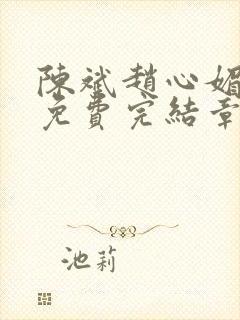 陳斌趙心媚
免費完結章
池莉